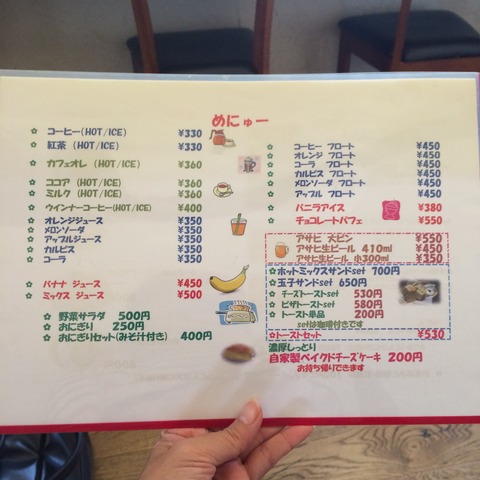 めにゅー
コーヒー(HOT/ICE) ¥330
紅茶(HOT/ICE) ¥330
カフェオレ (HOT/ICE) ¥360
ココア (HOT/ICE) ¥360
ミルク (HOT/ICE) ¥360
ウインナーコーヒー(HOT/ICE) ¥400
オレンジジュース ¥350
メロンソーダ ¥350
アップルジュース ¥350
カルピス ¥350
コーラ ¥350
バナナ ジュース ¥450
ミックス ジュース ¥500
野菜サラダ 500円
おにぎり 250円
おにぎりセット(みそ汁付き) 400円
コーヒー フロート ¥450
オレンジ フロート ¥450
コーラ フロート ¥450
カルピス フロート ¥450
メロンソーダ フロート ¥450
アップル フロート ¥450
バニラアイス ¥380
チョコレートパフェ ¥550
アサヒ 大ビン ¥550
アサヒ生ビール 410ml ¥450
アサヒ生ビール 小300ml ¥350
ホットミックスサンドset 700円
玉子サンドset 650円
チーズトーストset 530円
ピザトーストset 580円
トースト単品 200円
setは珈琲付きです
トーストセット ¥530
濃厚しっとり
自家製ベイクドチーズケーキ 200円
お持ち帰りできます